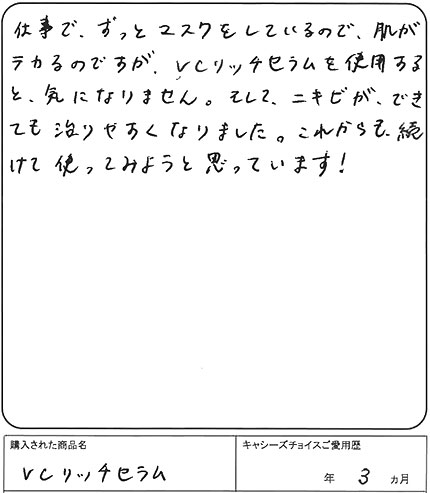 仕事で、ずっとマスクをしているので、肌が
テカるのですが、VCリッチセラムを使用する
と、気になりません。そして、ニキビが、でき
ても治りやすくなりました。これからも、続
けて使ってみようと思っています！
購入された商品名
VCリッチセラム
キャシーズチョイスご愛用歴
年 3 ヵ月